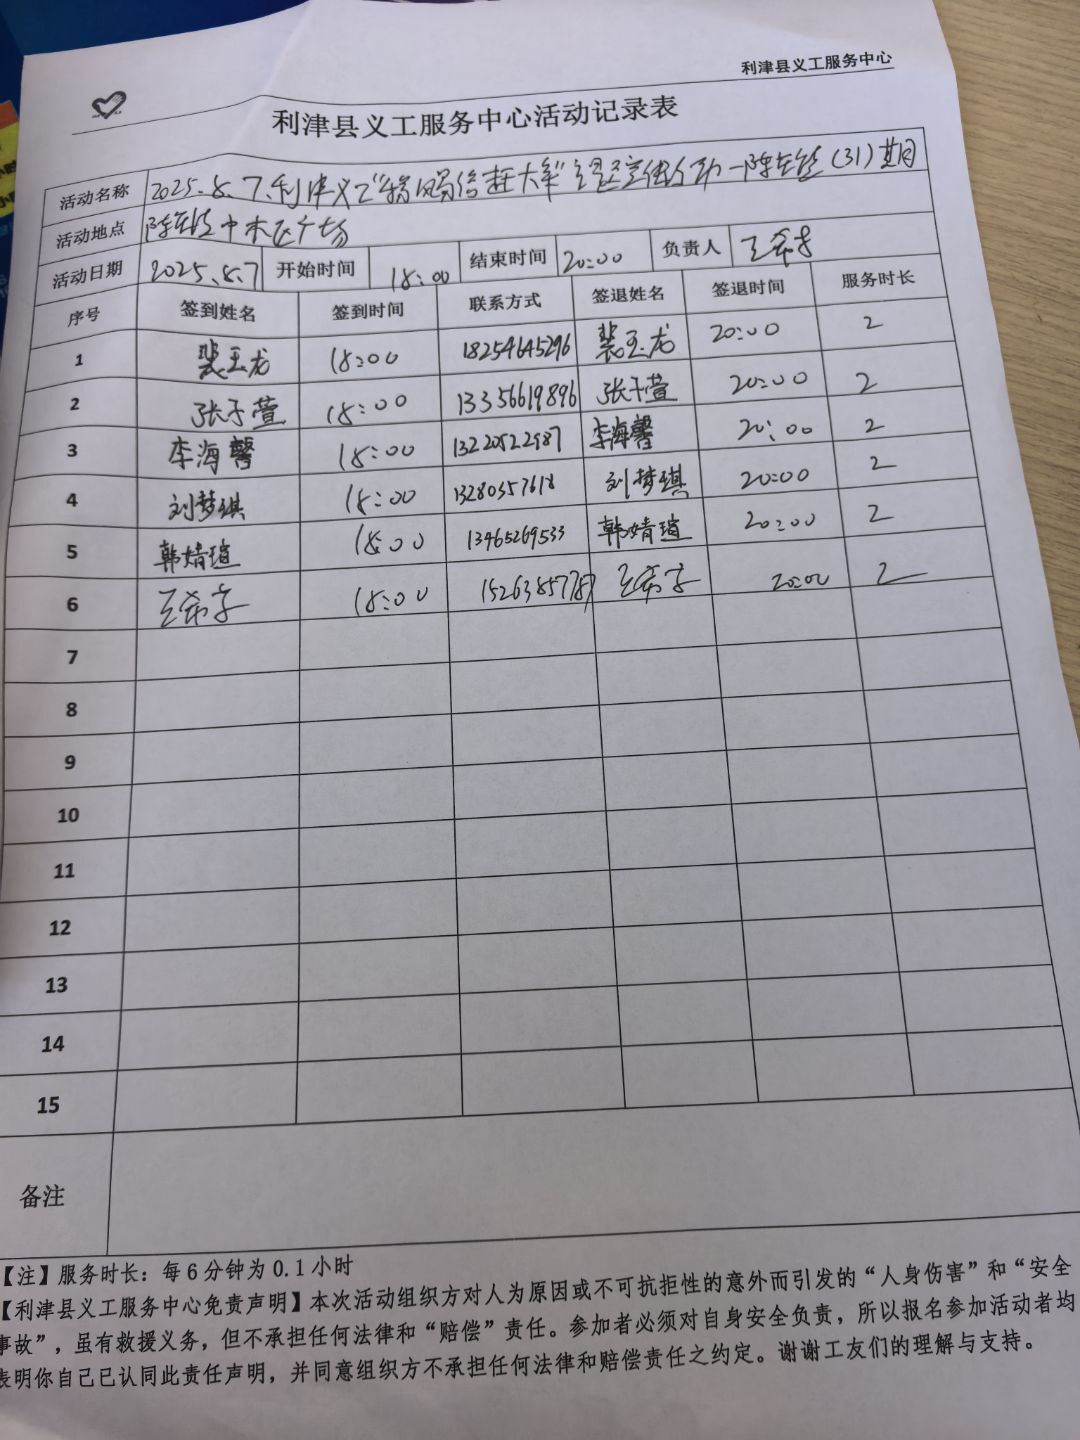 利津县义工服务中心
利津县义工服务中心活动记录表
活动名称 2025.8.7.利津义工"移风易俗赶大集" 宣传活动-陈庄站(31)期
活动地点 陈庄镇中心广场
活动日期 2025.8.7 开始时间 18:00 结束时间 20:00 负责人 王希
序号 签到姓名 签到时间 联系方式 签退姓名 签退时间 服务时长
1 裴玉龙 18:00 18254645296 裴玉龙 20:00 2
2 张子萱 18:00 13356619896 张子萱 20:00 2
3 李海馨 18:00 13220522987 李海馨 20:00 2
4 刘梦琪 18:00 13280357618 刘梦琪 20:00 2
5 韩婧瑄 18:00 13465269533 韩婧瑄 20:00 2
6 王希 18:00 15263857787 王希 20:00 2
7
8
9
10
11
12
13
14
15
备注
【注】服务时长：每6分钟为0.1小时
【利津县义工服务中心免责声明】本次活动组织方对人为原因或不可抗拒性的意外而引发的“人身伤害”和“安全
事故”，虽有救援义务，但不承担任何法律和“赔偿”责任。参加者必须对自身安全负责，所以报名参加活动者均
表明你自己已认同此责任声明，并同意组织方不承担任何法律和赔偿责任之约定。谢谢工友们的理解与支持。